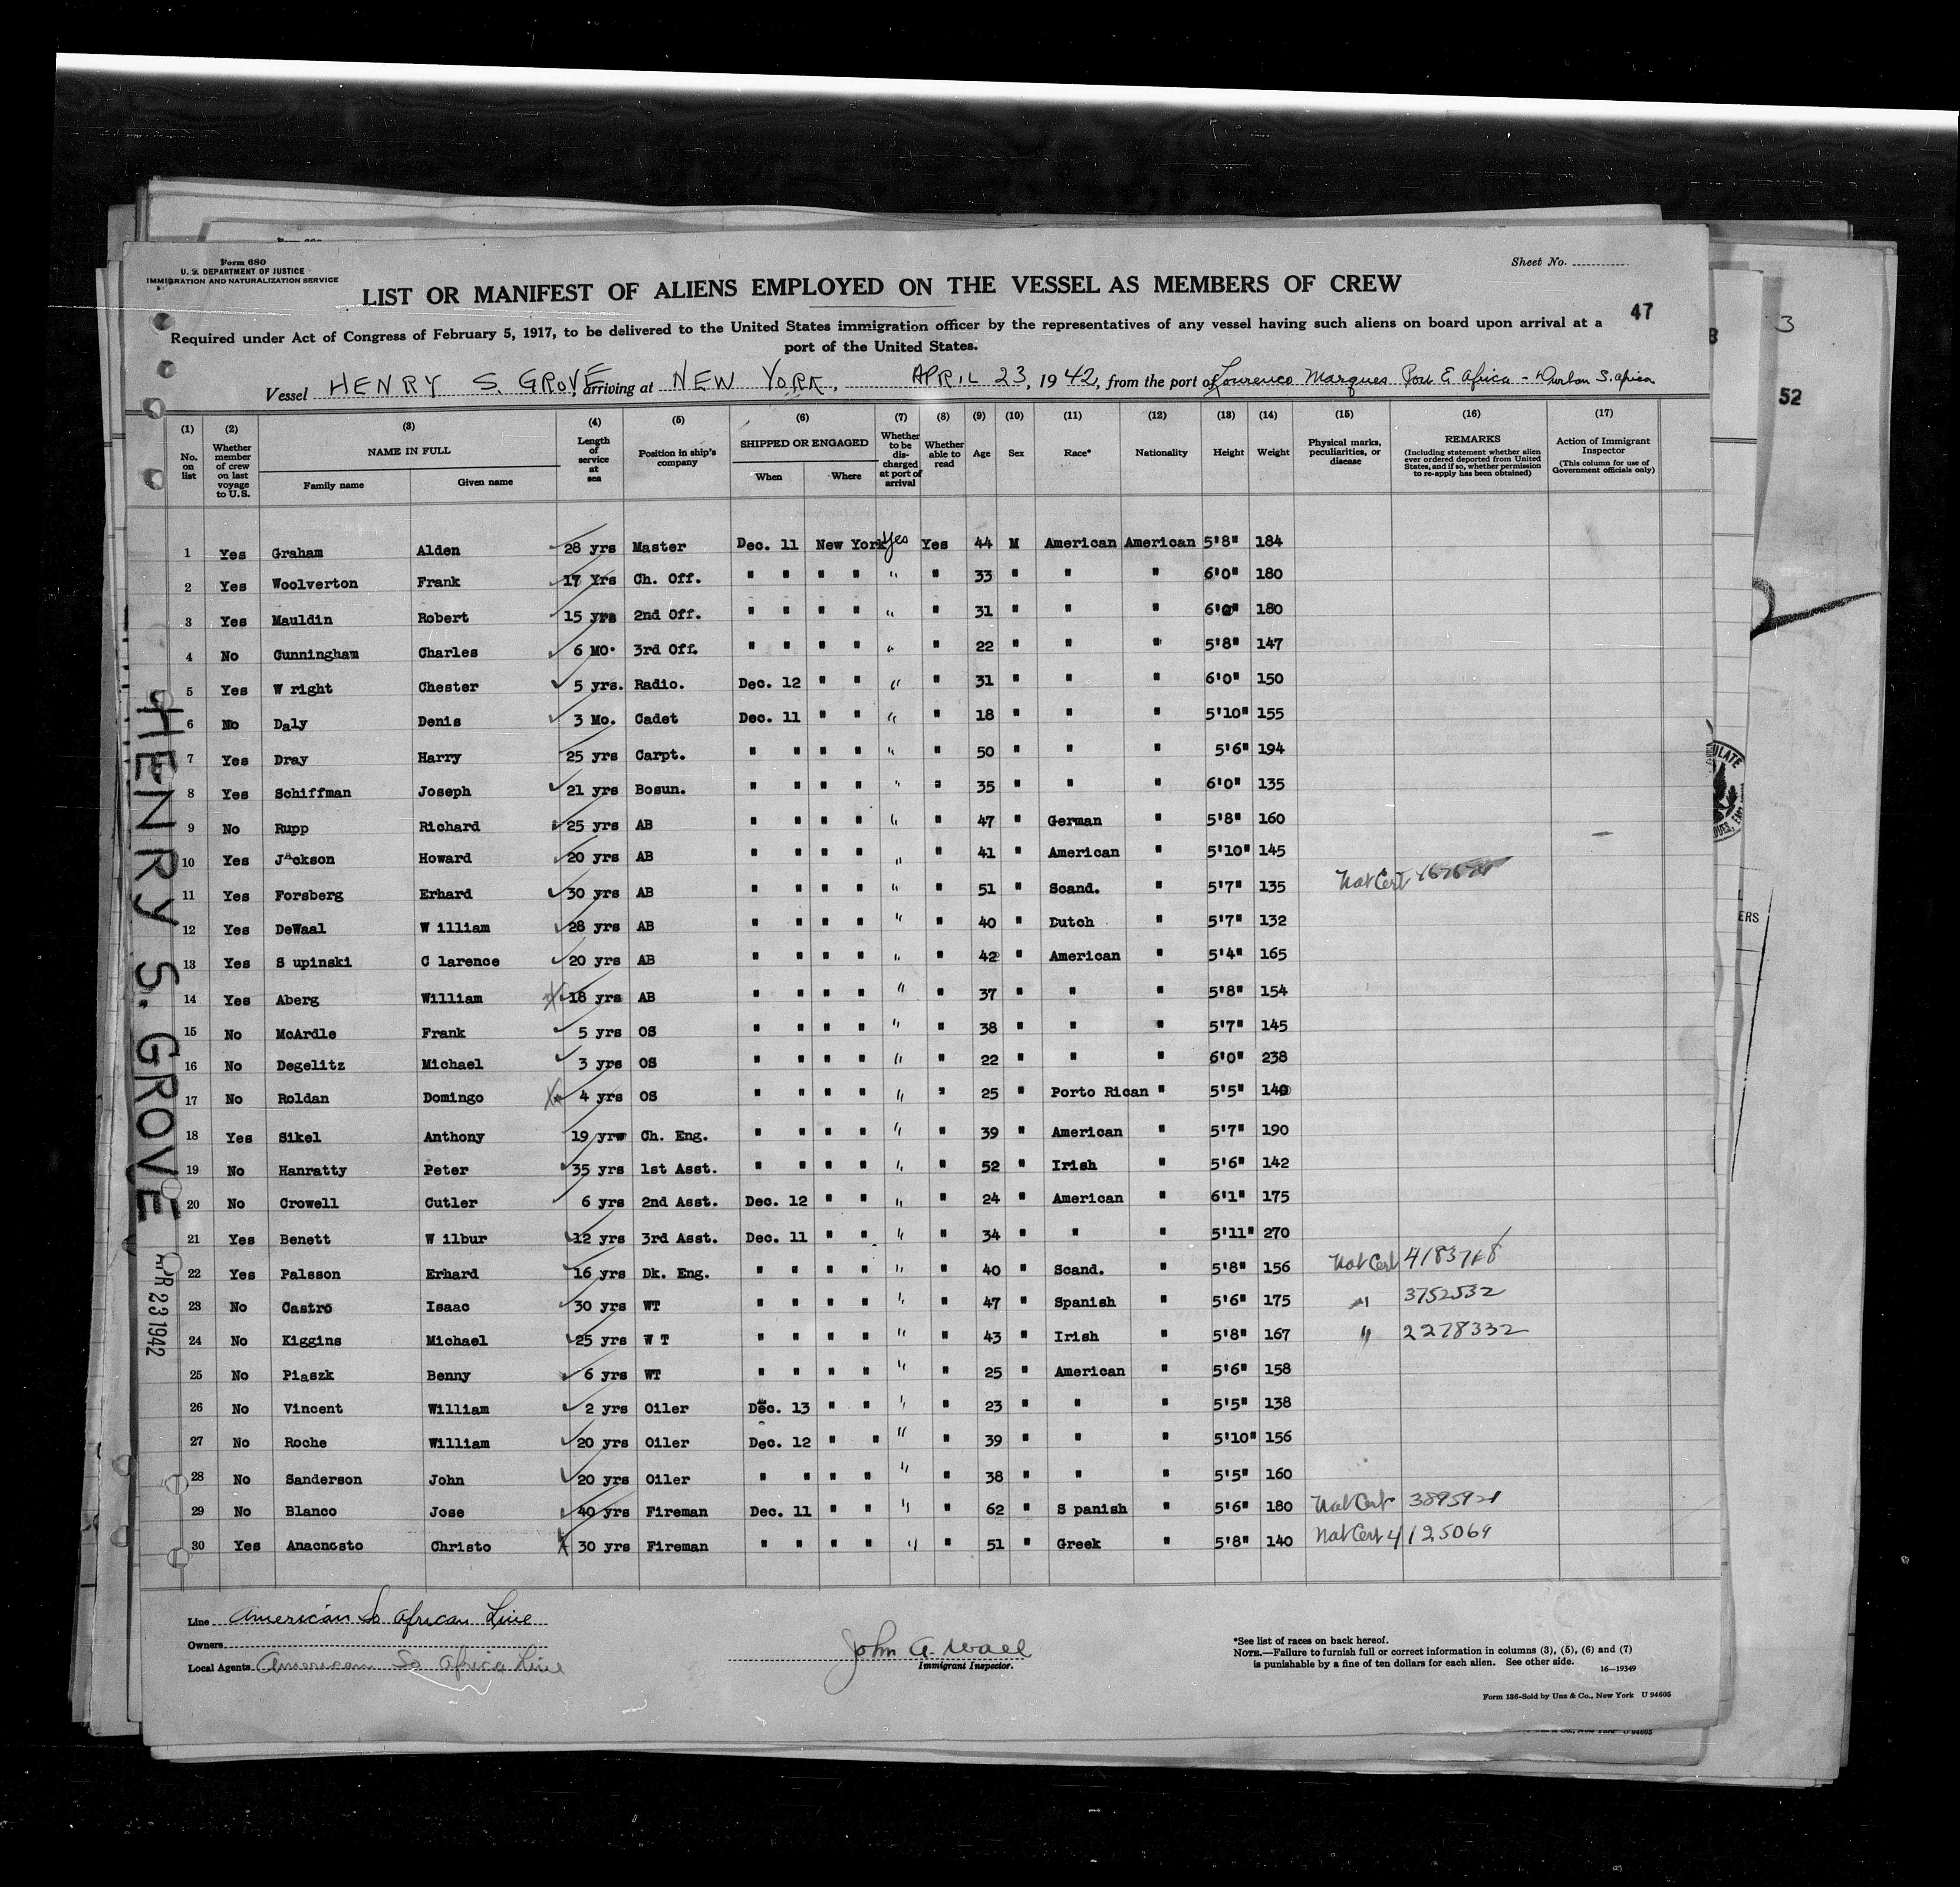 Form 680
U. S. DEPARTMENT OF JUSTICE
IMMIGRATION AND NATURALIZATION SERVICE
Sheet No.
LIST OR MANIFEST OF ALIENS EMPLOYED ON THE VESSEL AS MEMBERS OF CREW
47
Required under Act of Congress of February 5, 1917, to be delivered to the United States immigration officer by the representatives of any vessel having such aliens on board upon arrival at a
port of the United States.
Vessel HENRY S. GROVE, arriving at NEW YORK, APRIL 23, 1942, from the port of Lourenco Marques Port E. Africa - Durban S. Africa
(1) (2) (3) (4) (5) (6) (7) (8) (9) (10) (11) (12) (13) (14) (15) (16) (17)
No. on list
Whether member of crew on last voyage to U.S.
NAME IN FULL
Family name Given name
Length of service at sea
Position in ship's company
SHIPPED OR ENGAGED
When Where
Whether to be discharged at port of arrival
Whether able to read
Age
Sex
Race*
Nationality
Height
Weight
Physical marks, peculiarities, or disease
REMARKS
(Including statement whether alien ever ordered deported from United States, and if so, whether permission to re-apply has been obtained)
Action of Immigrant Inspector
(This column for use of Government officials only)
1 Yes Graham Alden 28 yrs Master Dec. 11 New York Yes Yes 44 M American American 5'8" 184
2 Yes Woolverton Frank 17 Yrs Ch. Off. " " " " " " 33 " " " 6'0" 180
3 Yes Mauldin Robert 15 yrs 2nd Off. " " " " " " 31 " " " 6'0" 180
4 No Cunningham Charles 6 MO. 3rd Off. " " " " " " 22 " " " 5'8" 147
5 Yes W right Chester 5 yrs. Radio. Dec. 12 " " " " 31 " " " 6'0" 150
6 No Daly Denis 3 Mo. Cadet Dec. 11 " " " " 18 " " " 5'10" 155
7 Yes Dray Harry 25 yrs Carpt. " " " " " " 50 " " " 5'6" 194
8 Yes Schiffman Joseph 21 yrs Bosun. " " " " " " 35 " " " 6'0" 135
9 No Rupp Richard 25 yrs AB " " " " " " 47 " German " 5'8" 160
10 Yes JAckson Howard 20 yrs AB " " " " " " 41 " American " 5'10" 145
11 Yes Forsberg Erhard 30 yrs AB " " " " " " 51 " Scand. " 5'7" 135 Nat Cert
12 Yes DeWaal W illiam 28 yrs AB " " " " " " 40 " Dutch " 5'7" 132
13 Yes S upinski C larence 20 yrs AB " " " " " " 42 " American " 5'4" 165
14 Yes Aberg William 18 yrs AB " " " " " " 37 " " " 5'8" 154
15 No McArdle Frank 5 yrs OS " " " " " " 38 " " " 5'7" 145
16 No Degelitz Michael 3 yrs OS " " " " " " 22 " " " 6'0" 238
17 No Roldan Domingo 4 yrs OS " " " " " " 25 " Porto Rican " 5'5" 140
18 Yes Sikel Anthony 19 yrs Ch. Eng. " " " " " " 39 " American " 5'7" 190
19 No Hanratty Peter 35 yrs 1st Asst. " " " " " " 52 " Irish " 5'6" 142
20 No Crowell Cutler 6 yrs 2nd Asst. Dec. 12 " " " " 24 " American " 6'1" 175
21 Yes Benett W ilbur 12 yrs 3rd Asst. Dec. 11 " " " " 34 " " " 5'11" 270
22 Yes Palsson Erhard 16 yrs Dk. Eng. " " " " " " 40 " Scand. " 5'8" 156 Nat Cert
23 No Castro Isaac 30 yrs WT " " " " " " 47 " Spanish " 5'6" 175 " 3752532
24 No Kiggins Michael 25 yrs W T " " " " " " 43 " Irish " 5'8" 167 " 2278332
25 No Piaszk Benny 6 yrs WT " " " " " " 25 " American " 5'6" 158
26 No Vincent William 2 yrs Oiler Dec. 13 " " " " 23 " " " 5'5" 138
27 No Roche William 20 yrs Oiler Dec. 12 " " " " 39 " " " 5'10" 156
28 No Sanderson John 20 yrs Oiler " " " " " " 38 " " " 5'5" 160
29 No Blanco Jose 40 yrs Fireman Dec. 11 " " " " 62 " S panish " 5'6" 180 Nat Cert
30 Yes Anacnosto Christo 30 yrs Fireman " " " " " " 51 " Greek " 5'8" 140 Nat Cert 4125069
HENRY S. GROVE
23 1942
Line American So African Line
Owners
Local Agents American So Africa Line
John A. Wael
Immigrant Inspector.
*See list of races on back hereof.
NOTE.—Failure to furnish full or correct information in columns (3), (5), (6) and (7)
is punishable by a fine of ten dollars for each alien. See other side.
16—19349
Form 136-Sold by Unz & Co., New York U 94605
3
52
ERS